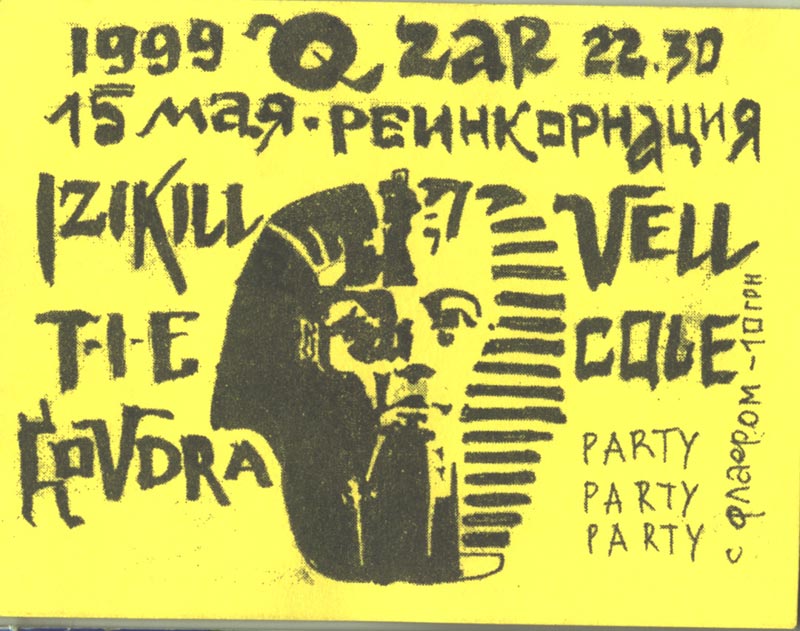 1999 Q ZAR 22.30
15 мая · РЕИНКОРНАЦИЯ
IZIKILL
VELL
T·I·E
COLE
GOVDRA
PARTY
PARTY
PARTY
с флаером - 10 грн